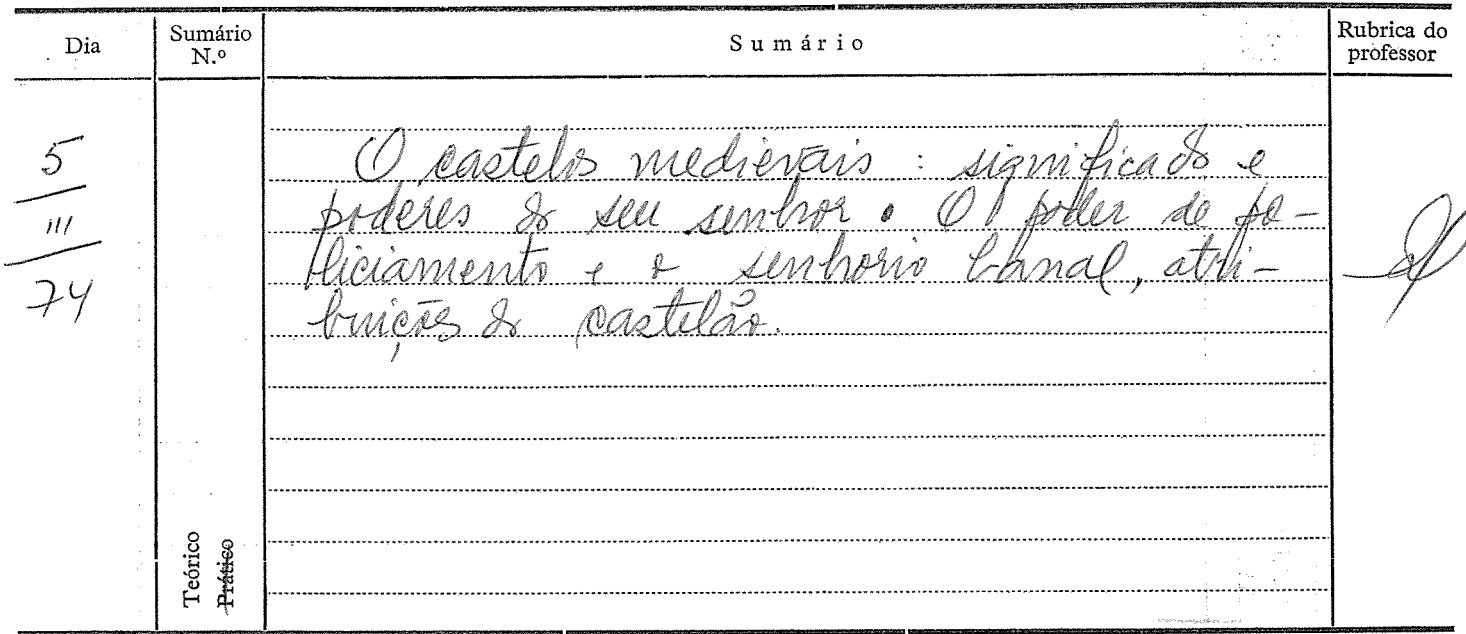 Dia
Sumário
N.º
Sumário
Rubrica do
professor
5
III
74
O castelos medievais : significado e
poderes do seu senhor. O poder de po-
liciamento e o senhorio banal, atri-
buições do castelão.
Teórico
Prático